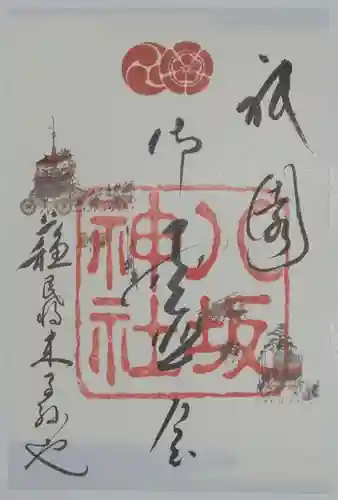 祇園
御霊会
蘇民将来子孫也
八坂
神社